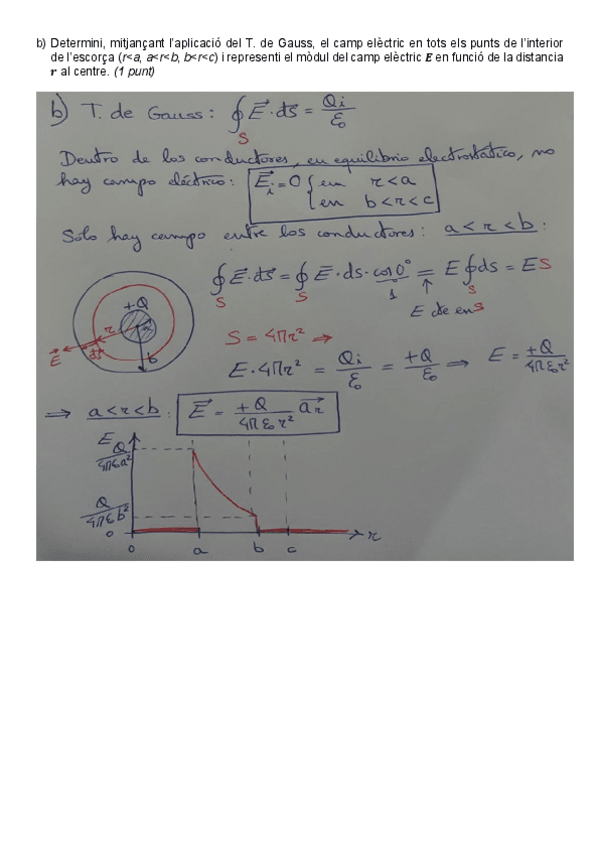 b) Determini, mitjançant l'aplicació del T. de Gauss, el camp elèctric en tots els punts de l'interior
de l'escorça (r<a, a<r<b, b<r<c) i representi el mòdul del camp elèctric E en funció de la distancia
r al centre. (1 punt)
b) T. de Gauss: ∮ E⃗·ds⃗ = Qi/ε₀
S
Dentro de los conductores, en equilibrio electrostático, no
hay campo eléctrico: E⃗i = 0 { en r<a
en b<r<c
Sólo hay campo entre los conductores: a<r<b:
∮ E⃗·ds⃗ = ∮ E⃗·ds·cos 0° = E ∮ ds = ES
S S 1 ↑ S
E cte en S
+Q
r
a
E⃗
ds⃗
b
S = 4πr² →
E·4πr² = Qi/ε₀ = +Q/ε₀ ⟹ E = +Q/4πε₀r²
⟹ a<r<b: E⃗ = +Q/4πε₀r² a⃗r
E
Q/4πε₀a²
Q/4πε₀b²
0
0 a b c r